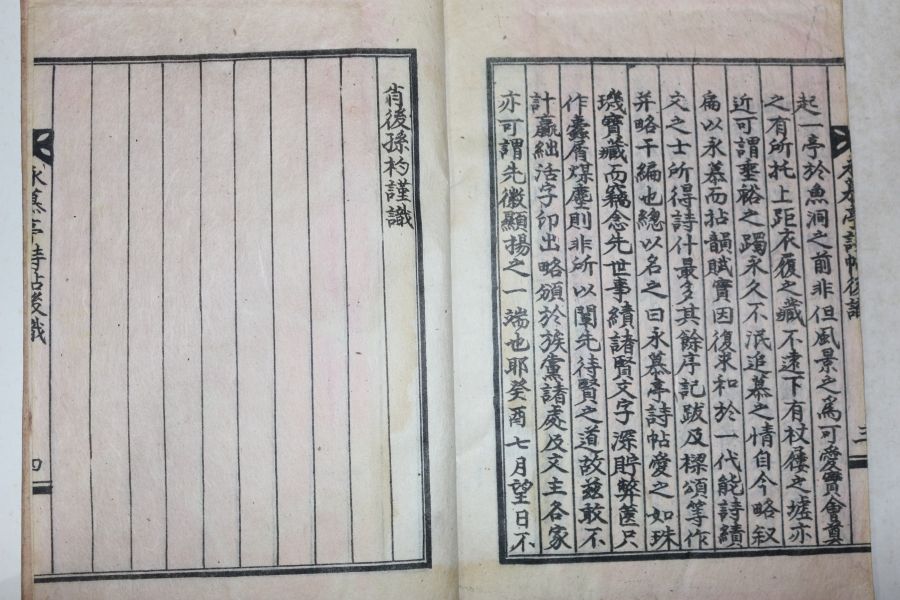 永慕亭詩帖後識
三
起一亭於魚洞之前非但風景之為可愛實會奠
之有所托上距衣履之藏不遠下有杖屨之墟亦
近可謂垂裕之躅永久不泯追慕之情自今略叙
扁以永慕而拈韻賦實因復求和於一代能詩績
文之士所得詩什最多其餘序記跋及樑頌等作
并略干編也總以名之曰永慕亭詩帖愛之如珠
璣寶藏而竊念先世事績諸賢文字深貯弊篋只
作蠹屑煤塵則非所以闡先待賢之道故玆敢不
計贏絀活字印出略頒於族黨諸處及文主各家
亦可謂先徽顯揚之一端也耶癸酉七月望日不
肖後孫杓謹識
永慕亭詩帖後識
四